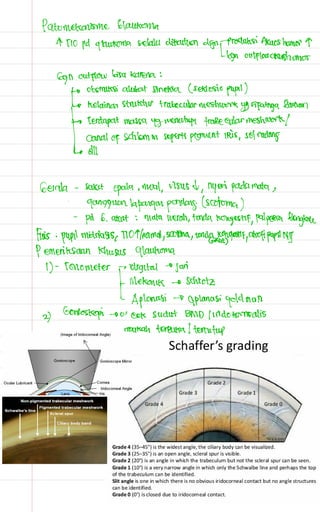 Patomekanisme Glaukoma
↑ TIO pd glaukoma selalu dikaitkan dgn produksi Akues humor ↑
ggn outflow akues humor
Ggn outflow bisa karena :
obstruksi akibat sinekia (seklusio pupil)
Kelainan struktur trabecular meshwork yg sifatnya
Terdapat massa yg menutup trabecular meshwork/
Canal of Schlemm seperti pigment iris, sel radang
dll
Gejala - sakit kepala, mual, visus ↓, nyeri pada mata,
gangguan lapangan pandang (scotoma)
- pd G. akut : mata merah, tanda kongestif, palpebra bengkak
Pemeriksaan khusus glaukoma
1) - Tonometer digital → jari
Mekanis → Schiotz
Aplanasi → aplanasi goldman
2) Gonioskopi → u/ cek sudut BMD (iridocornealis
masih terbuka / tertutup
(Image of Iridocorneal Angle)
Gonioscope
Gonioscope Mirror
Ocular Lubricant
Cornea
Iridocorneal Angle
Iris
Lens
Non-pigmented trabecular meshwork
Schwalbe's line
Pigmented trabecular meshwork
Scleral spur
Ciliary body band
Schaffer's grading
Grade 4
Grade 3
Grade 2
Grade 1
Grade 0
Grade 4 (35–45°) is the widest angle, the ciliary body can be visualized.
Grade 3 (25–35°) is an open angle, scleral spur is visible.
Grade 2 (20°) is an angle in which the trabeculum but not the scleral spur can be seen.
Grade 1 (10°) is a very narrow angle in which only the Schwalbe line and perhaps the top
of the trabeculum can be identified.
Slit angle is one in which there is no obvious iridocorneal contact but no angle structures
can be identified.
Grade 0 (0°) is closed due to iridocorneal contact.